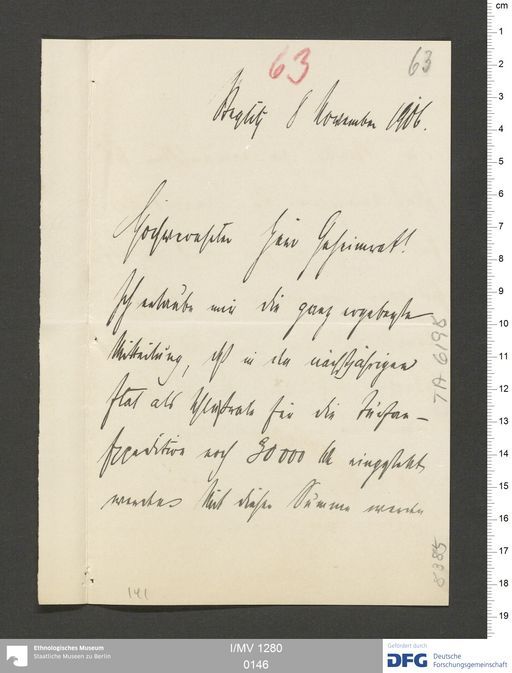 63
63
Steglitz 8 November 1906.
Hochverehrter Herr Geheimrat!
Ich erlaube mir die ganz ergebenste
Mitteilung, daß in den nächstjährigen
Etat als Schlußrate für die Turfan-
Expedition noch 30000 M eingestellt
werden. Mit dieser Summe werden
TA 6198
8385
141
cm
1
2
3
4
5
6
7
8
9
10
11
12
13
14
15
16
17
18
19
Ethnologisches Museum
Staatliche Museen zu Berlin
I/MV 1280
0146
Gefördert durch
DFG Deutsche
Forschungsgemeinschaft